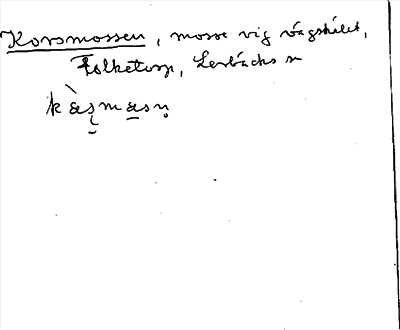 Korsmossen, mosse vig vägskälet,
Folketorp, Lerbäcks sn